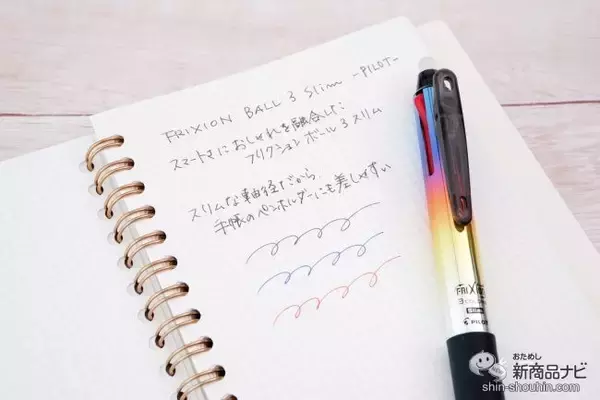 FRIXION BALL 3 Slim -PILOT-
スマートさにおしゃれを融合した
フリクションボール3スリム
スリムな軸径だから、
手帳のペンホルダーにも差しやすい
FRIXI
3
PILOT
おためし
新商品ナビ
shin-shouhin.com